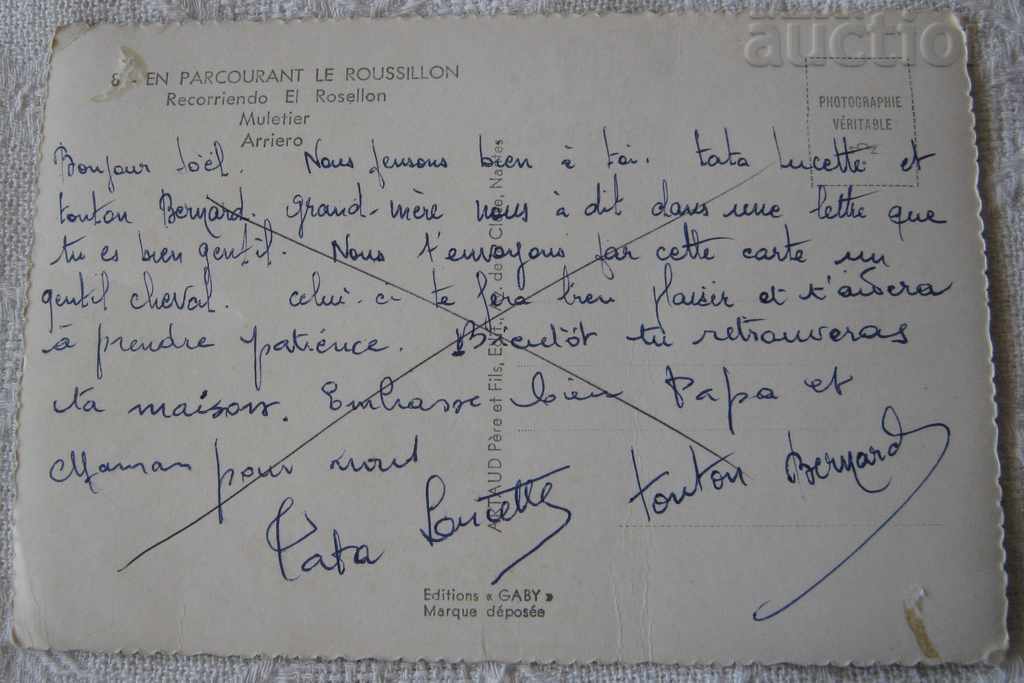 auctio
8 - EN PARCOURANT LE ROUSSILLON
Recorriendo El Rosellon
Muletier
Arriero
PHOTOGRAPHIE
VÉRITABLE
Bonjour Joël. Nous pensons bien à toi. tata Lucette et
tonton Bernard. grand-mère nous à dit dans une lettre que
tu es bien gentil. Nous t'envoyons par cette carte un
gentil cheval. celui-ci te fera bien plaisir et t'aidera
à prendre patience. Bientôt tu retrouveras
ta maison. Embrasse bien Papa et
Maman pour nous
Tata Lucette tonton Bernard
ARTAUD Père et Fils, Edit., de Nantes
Editions « GABY »
Marque déposée